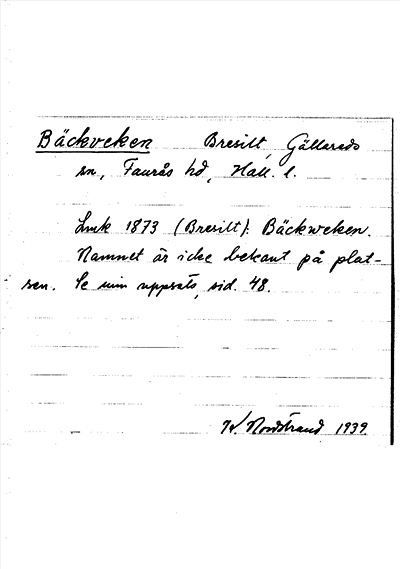 Bäckveken Bresilt, Gällareds
sn, Faurås hd, Hall. l.
Lmk 1873 (Bresilt): Bäckweken.
Namnet är icke bekant på plat-
sen. Se min uppsats, sid. 48.
Nordstrand 1939.